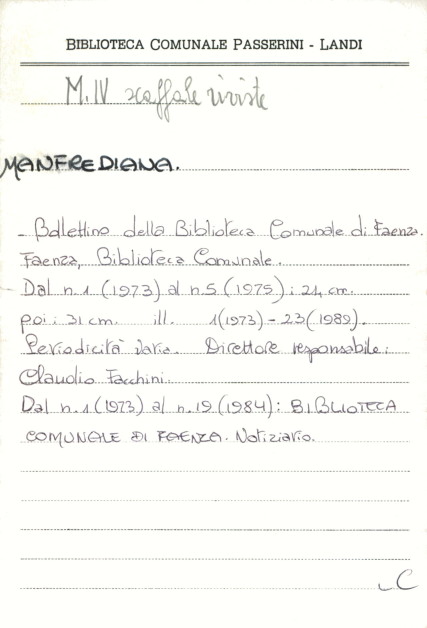 BIBLIOTECA COMUNALE PASSERINI - LANDI
M.IV scaffale riviste
MANFREDIANA.
- Bollettino della Biblioteca Comunale di Faenza.
Faenza, Biblioteca Comunale.
Dal n.1 (1973) al n.5 (1975): 24 cm.
poi: 31 cm. ill. 1(1973) - 23(1989).
Periodicità varia. Direttore responsabile:
Claudio Facchini.
Dal n.1 (1973) al n.19 (1984): BIBLIOTECA
COMUNALE DI FAENZA. Notiziario.